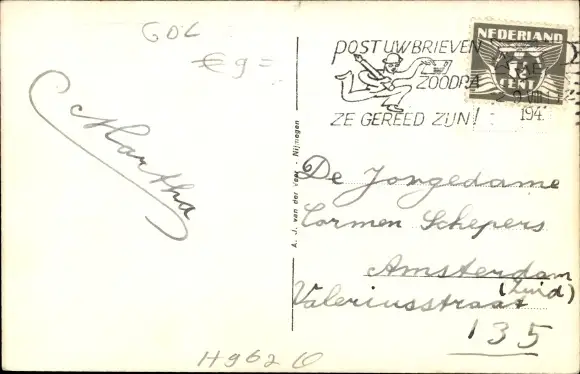 GOL
€ 9 =
POST UW BRIEVEN
ZOODRA
ZE GEREED ZIJN!
NEDERLAND
CENT
VIII
194.
Martha
A. J. van der Veer - Nijmegen
De Jongedame
Carmen Schepers
Amsterdam
(Zuid)
Valeriusstraat
135
H962